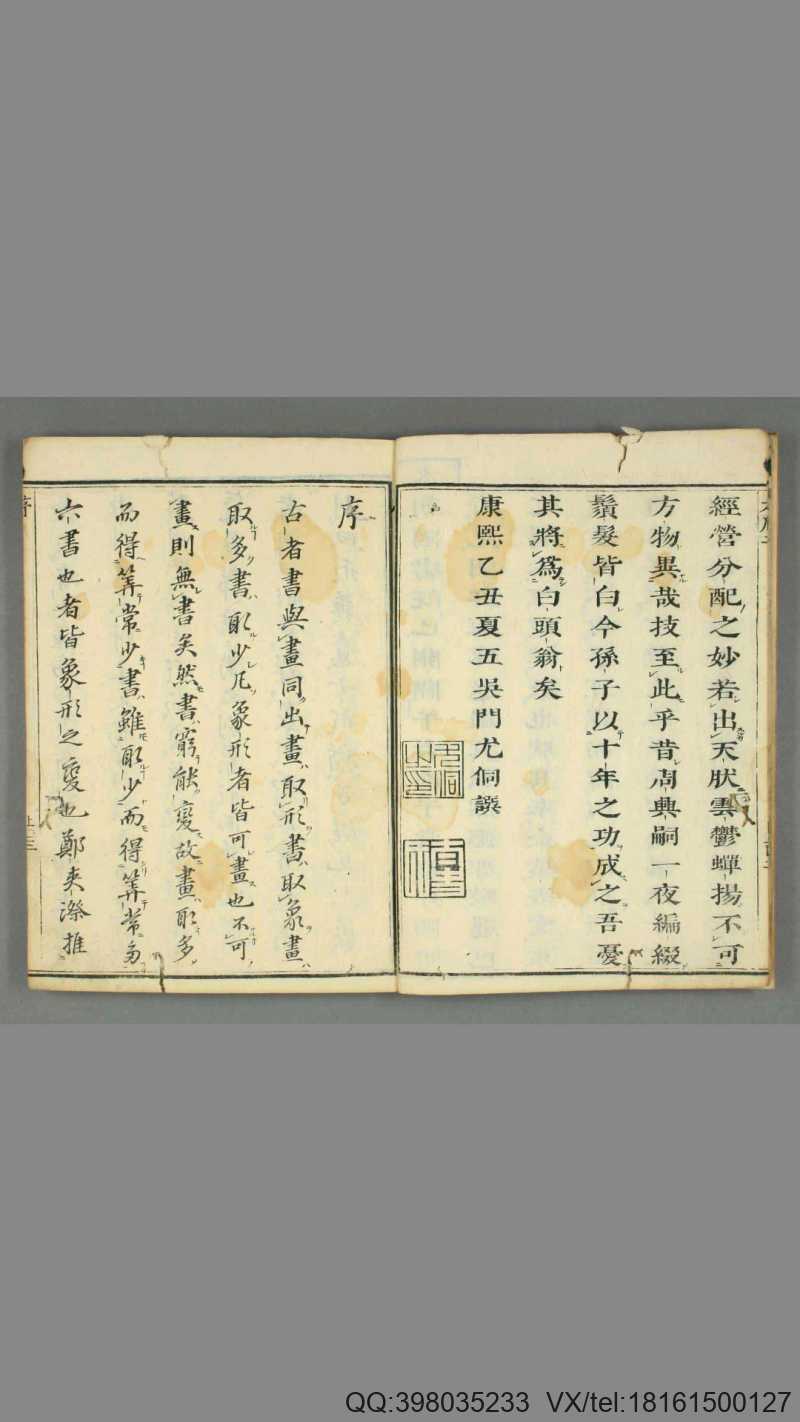 經營分配之妙若出天朕雲鬱蟬揚不可
方物異哉技至此乎昔周興嗣一夜編綴
鬚髮皆白今孫子以十年之功成之吾憂
其將爲白頭翁矣
康熙乙丑夏五吳門尤侗譔
序
古者書與畫同出畫取形書取象畫
取多書取少凡象形者皆可畫也不可
畫則無書矣然書窮能變故畫取多
而得筭常少書雖取少而得筭常多
六書也者皆象形之變也鄭夾漈推
QQ:398035233 VX/tel:18161500127